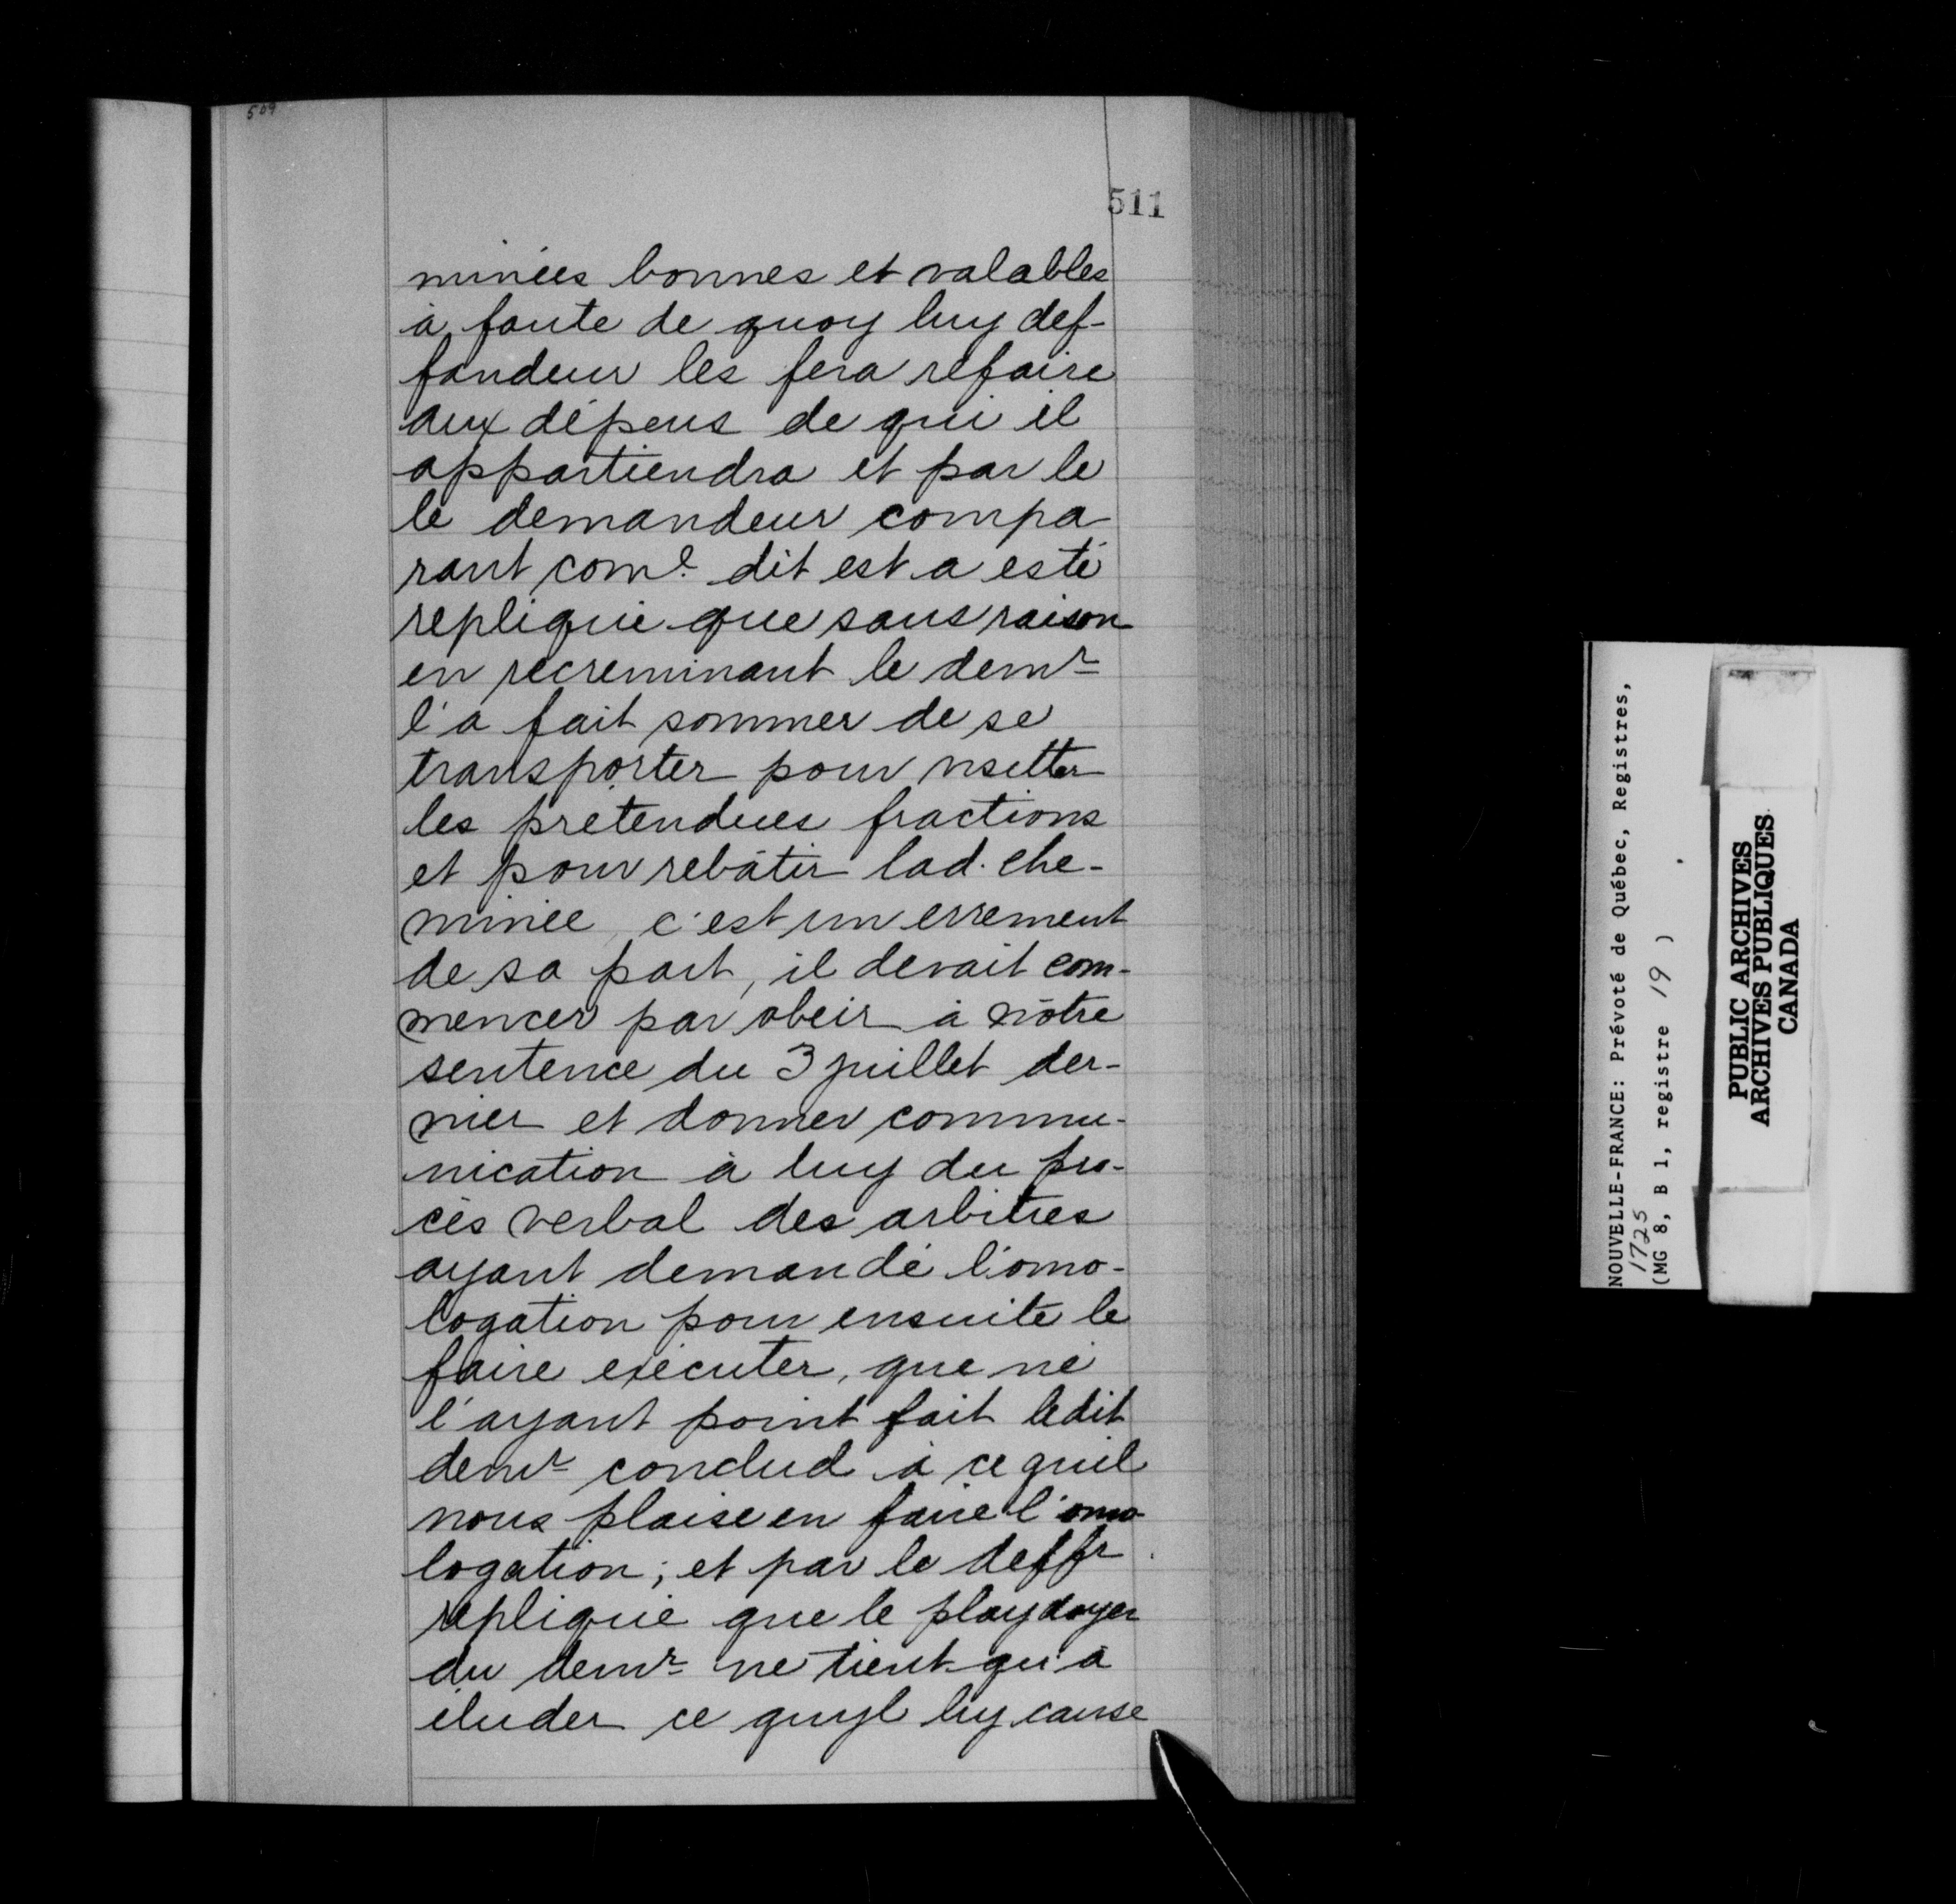 509
511
minées bonnes et valables
à faute de quoy luy def-
fandeur les fera refaire
aux dépens de qui il
appartiendra et par le
le demandeur compa
rant com.e dit est a esté
replique que sans raison
en recreminant le demr
l'a fait sommer de se
transporter pour visetter
les prétendues fractions
et pour rebâtir lad. che-
minée, c'est un errement
de sa part, il devait com-
mencer par obeir à nôtre
sentence du 3 juillet der-
nier et donner commu-
nication à luy du pro-
cès verbal des arbitres
ayant demandé l'omo-
logation pour ensuite le
faire exécuter, que ne
l'ayant point fait ledit
demr conclud à ce quil
nous plaise en faire l'omo-
logation; et par le deffr
repliqué que le playdoyer
du demr ne tient qu'à
éluder ce quyl luy cause
NOUVELLE-FRANCE: Prévoté de Québec, Registres,
1725
(MG 8, B 1, registre 19 )
PUBLIC ARCHIVES
ARCHIVES PUBLIQUES
CANADA